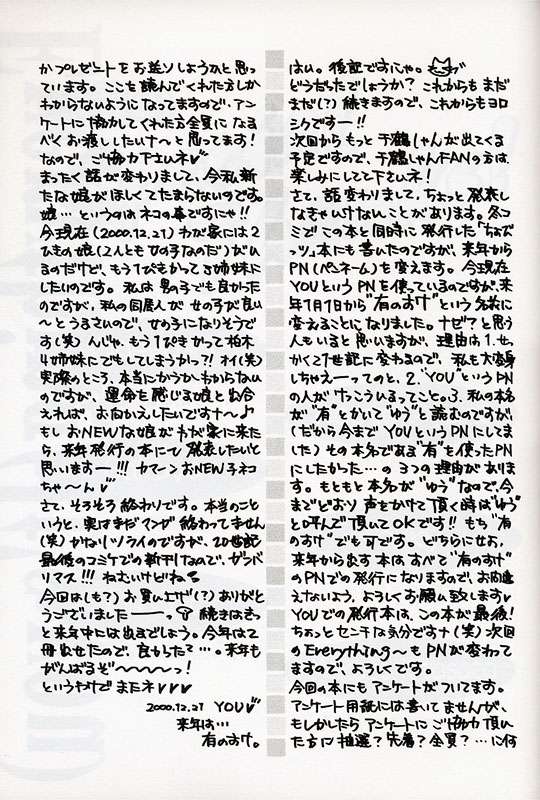 はい。後記ですにゃ。
どうだったでしょうか？これからもまだ
まだ(?)続きますので、これからもヨロ
シクですー!!
次回からもっと千鶴しゃんが出てくる
予定ですので、千鶴しゃんFANの方は
楽しみにしてて下さいネ！
さて、話変わりまして、ちょっと発表し
なきゃいけないことがあります。冬コ
ミでこの本と同時に発行した「ちょびッ
ツ」本にも書いたのですが、来年から
PN(ペンネーム)を変えます。今現在
YOUというPNを使っているのですが、来
年1月1日から"有のすけ"という名前に
変えることになりました。ナゼ？と思う
人もいると思いますが、理由は1.せっ
かく21世紀に変わるので、私も大変身
しちゃえーってのと、2."YOU"というPN
の人がけっこういるってこと。3.私の本名
が"有"とかいて"ゆう"と読むのですが、
(だから今までYOUというPNにしてま
した)その本名である"有"を使ったPN
にしたかった…の3つの理由がありま
す。もともと本名が"ゆう"なので、今
までどおり声をかけて頂く時は"ゆう"
と呼んで頂いてOKです!!もち"有
のすけ"でも可です。どちらにせよ、
来年から出す本はすべて"有のすけ"
のPNでの発行になりますので、お間違
えないよう、よろしくお願い致します♥
YOUでの発行本は、この本が最後！
ちょっとセンチな気分ですナ(笑)次回
のEverything〜もPNが変わって
ますので、よろしくです。
今回の本にもアンケートがついてます。
アンケート用紙には書いてませんが、
もしかしたらアンケートにご協力頂い
た方に抽選？先着？全員？…に何
かプレゼントをお送りしようかと思っ
ています。ここを読んでくれた方しか
わからないようになってますので、アン
ケートに協力してくれた方全員になる
べくお渡ししたいナ〜と思ってます！
なので、ご協力下さいネ♥
まったく話が変わりまして、今私新
たな娘がほしくてたまらないのです。
娘…というのはネコの事ですにゃ!!
今現在(2000.12.21)わが家には2
ひきの娘(2人とも女の子なのだ)がい
るのだけど、もう1ぴきかって3姉妹に
したいのです。私は男の子でも良かった
のですが、私の同居人が女の子が良い
〜とうるさいので、女の子になりそうで
す(笑)んじゃ、もう1ぴきかって柏木
4姉妹にでもしてしまうかっ?!オイ(笑)
実際のところ、本当にかうかわからない
のですが、運命を感じる娘と出会
えれば、お向かえしたいですナ〜♪
もしおNEWな娘がわが家に来た
ら、来年発行の本にて発表したいと
思いますー!!!カマーンおNEW子ネコ
ちゃ〜ん♥
さて、そろそろ終わりです。本当のこと
いうと、実はまだマンガ終わってません
(笑)かなりツライのですが、20世紀
最後のコミケでの新刊なので、ガンバ
リマス!!!ねむいけどね
今回は(も?)お買い上げ(?)ありがと
うございましたーーっ 続きはきっ
と来年中には出るでしょう。今年は2
冊出せたので、良かった？…。来年も
がんばるぞ〜〜〜〜っ！
というわけでまたネ♥♥♥
2000.12.21 YOU♥
来年は…
有のすけ。